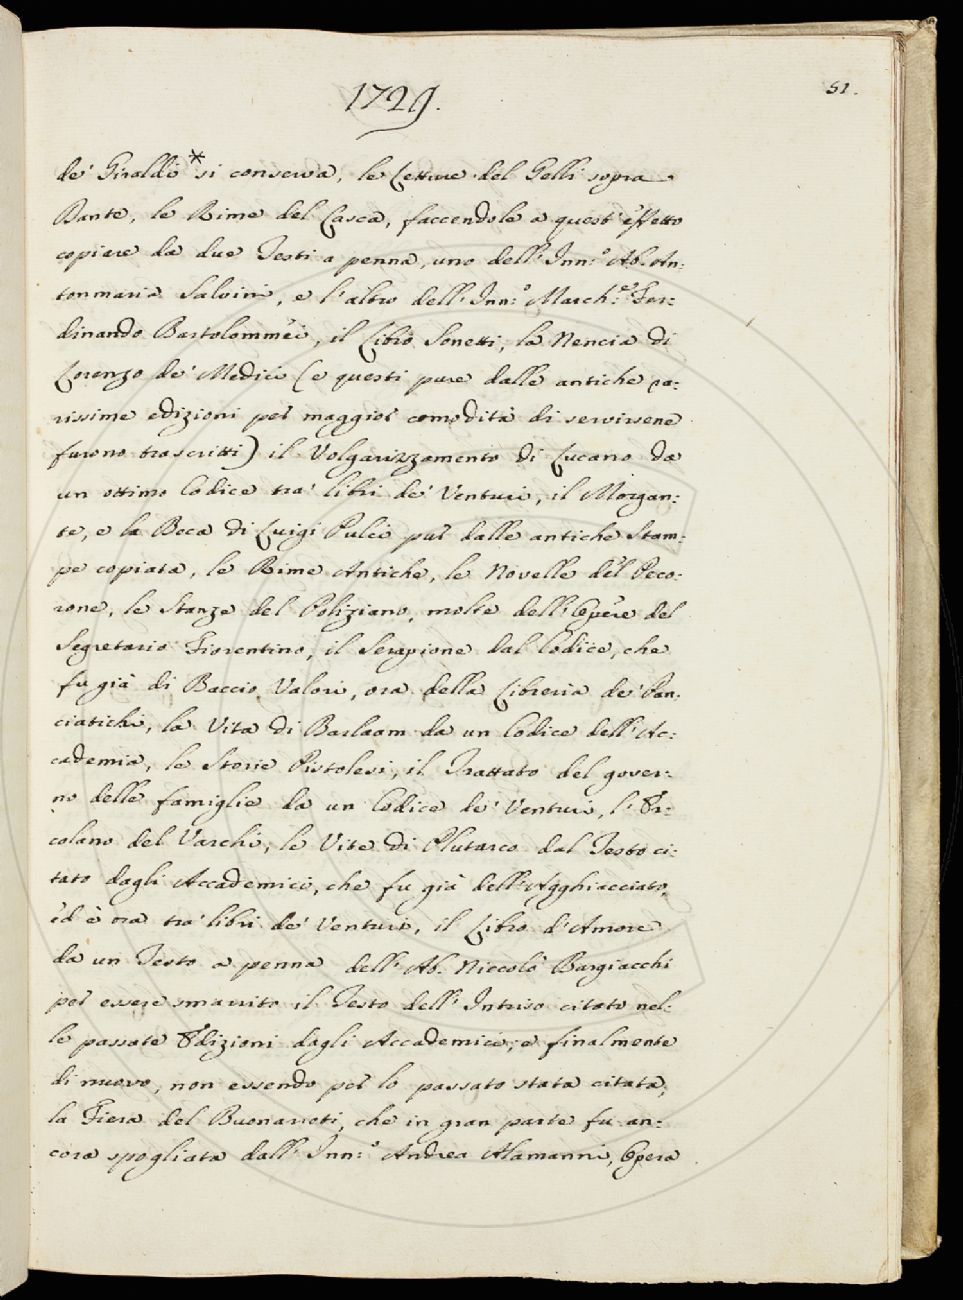 1729.
51.
de' Giraldi * si conserva, le Letture del Gelli sopra
Dante, le Rime del Lasca, faccendole a quest' effetto
copiare da due Testi a penna, uno dell' Inn:° Ab. An:
tonmaria Salvini, e l' altro dell' Inn:° March:e Fer:
dinando Bartolommei, il Libro Sonetti, la Nencia di
Lorenzo de' Medici (e questi pure dalle antiche ra:
rissime edizioni per maggior comodità di servirsene
furono trascritti) il Volgarizzamento di Lucano da
un ottimo Codice tra' libri de' Venturi, il Morgan:
te, e la Beca di Luigi Pulci pur dalle antiche Stam:
pe copiata, le Rime Antiche, le Novelle del Peco:
rone, le Stanze del Poliziano, molte dell' Opere del
Segretario Fiorentino, il Serapione dal Codice, che
fu già di Baccio Valori, ora della Libreria de' Pan:
ciatichi, la Vita di Barlaam da un Codice dell' Ac:
cademia, le Storie Pistolesi, il Trattato del gover:
no delle famiglie da un Codice de' Venturi, l' Er:
colano del Varchi, le Vite di Plutarco dal Testo ci:
tato dagli Accademici, che fu già dell' Agghiacciato,
ed è ora tra' libri de' Venturi, il Libro d' Amore
da un Testo a penna dell' Ab. Niccolò Bargiacchi
per essere smarrito il Testo dell' Intriso citato nel:
le passate Edizioni dagli Accademici, e finalmente
di nuovo, non essendo per lo passato stata citata,
la Fiera del Buonarroti, che in gran parte fu an:
cora spogliata dall' Inn:° Andrea Alamanni, Opera